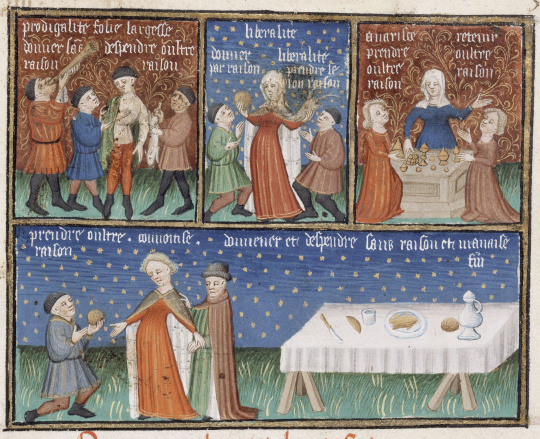 prodigalite folie largesse
donner sãs despendre oultre
raison raison
liberalite
donner liberalite
par raison prendre se
lon raison
auarisse retenir
prendre oultre
oultre raison
raison
prendre oultre . conuoitise . donnener et despendre sans raison et mauaise
raison fin